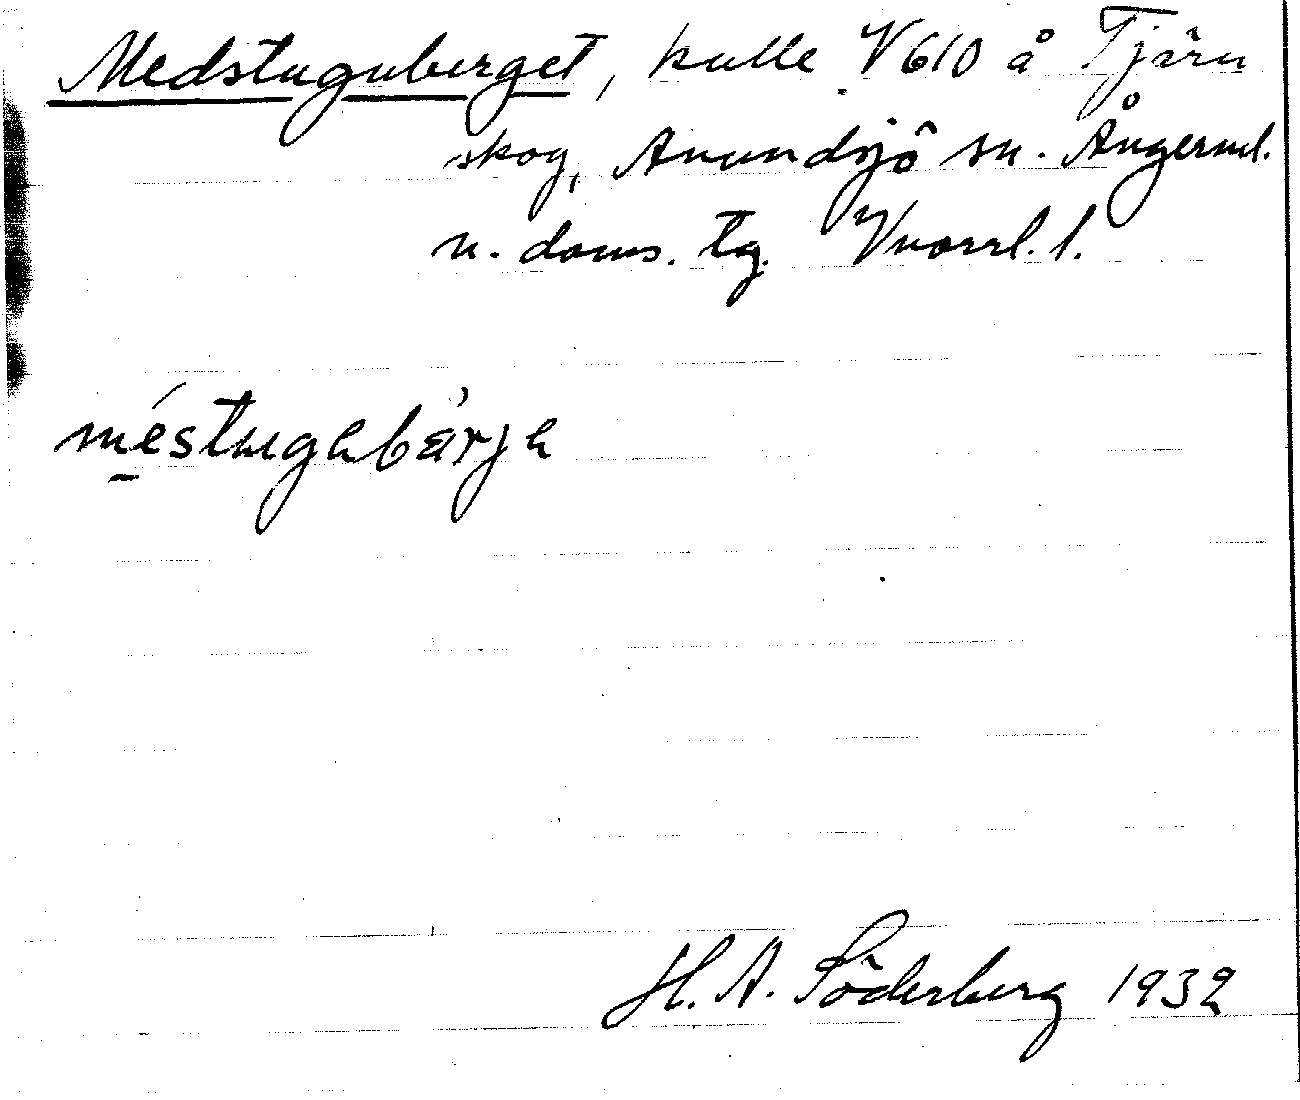 Medstuguberget, kulle V610 å Tjärn
skog, Anundsjö sn. Ångerml.
n. doms. tg. Vnorrl. l.
méstugebárje
H. A. Söderberg 1932